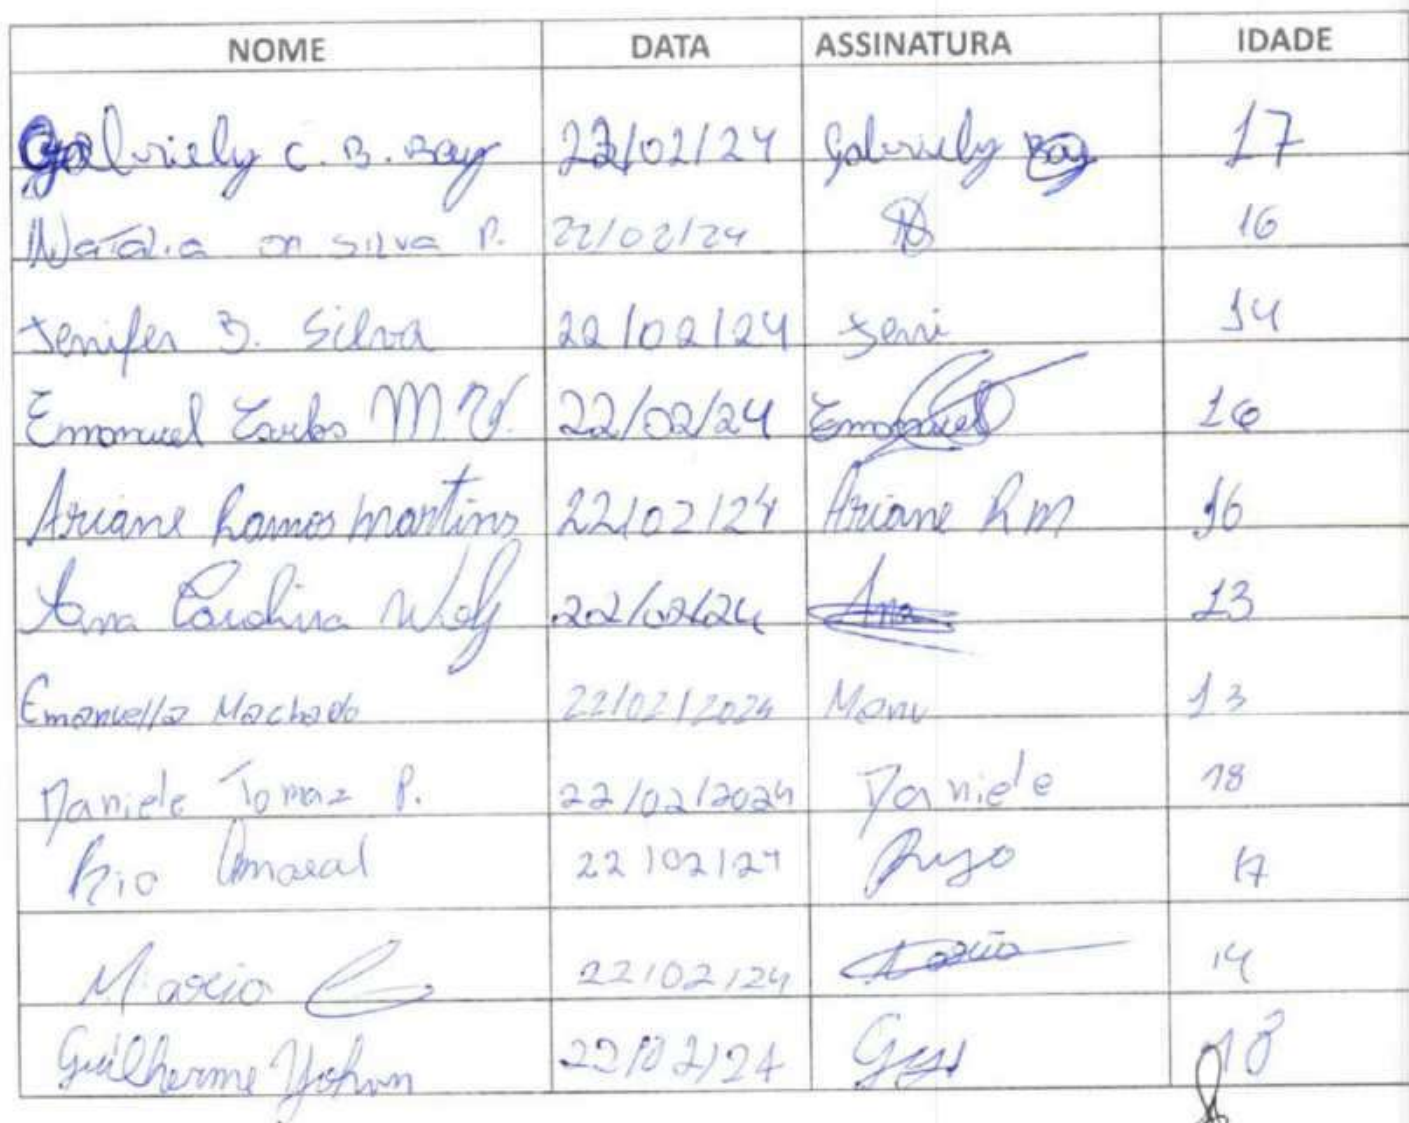 NOME DATA ASSINATURA IDADE
Gabriely C. B. Bay 22/02/24 Gabriely Bay 17
Natalia da Silva P. 22/02/24 16
Jenifer B. Silva 22/02/24 Jeni 14
Emanuel Carlos M. 22/02/24 Emanuel 16
Ariane Ramos Martins 22/02/24 Ariane R M 16
Ana Carolina Wolf 22/02/24 Ana 13
Emanuella Machado 22/02/2024 Manu 13
Daniele Tomaz P. 22/02/2024 Daniele 18
Amaral 22/02/24 17
22/02/24 14
Guilherme 22/02/24 18